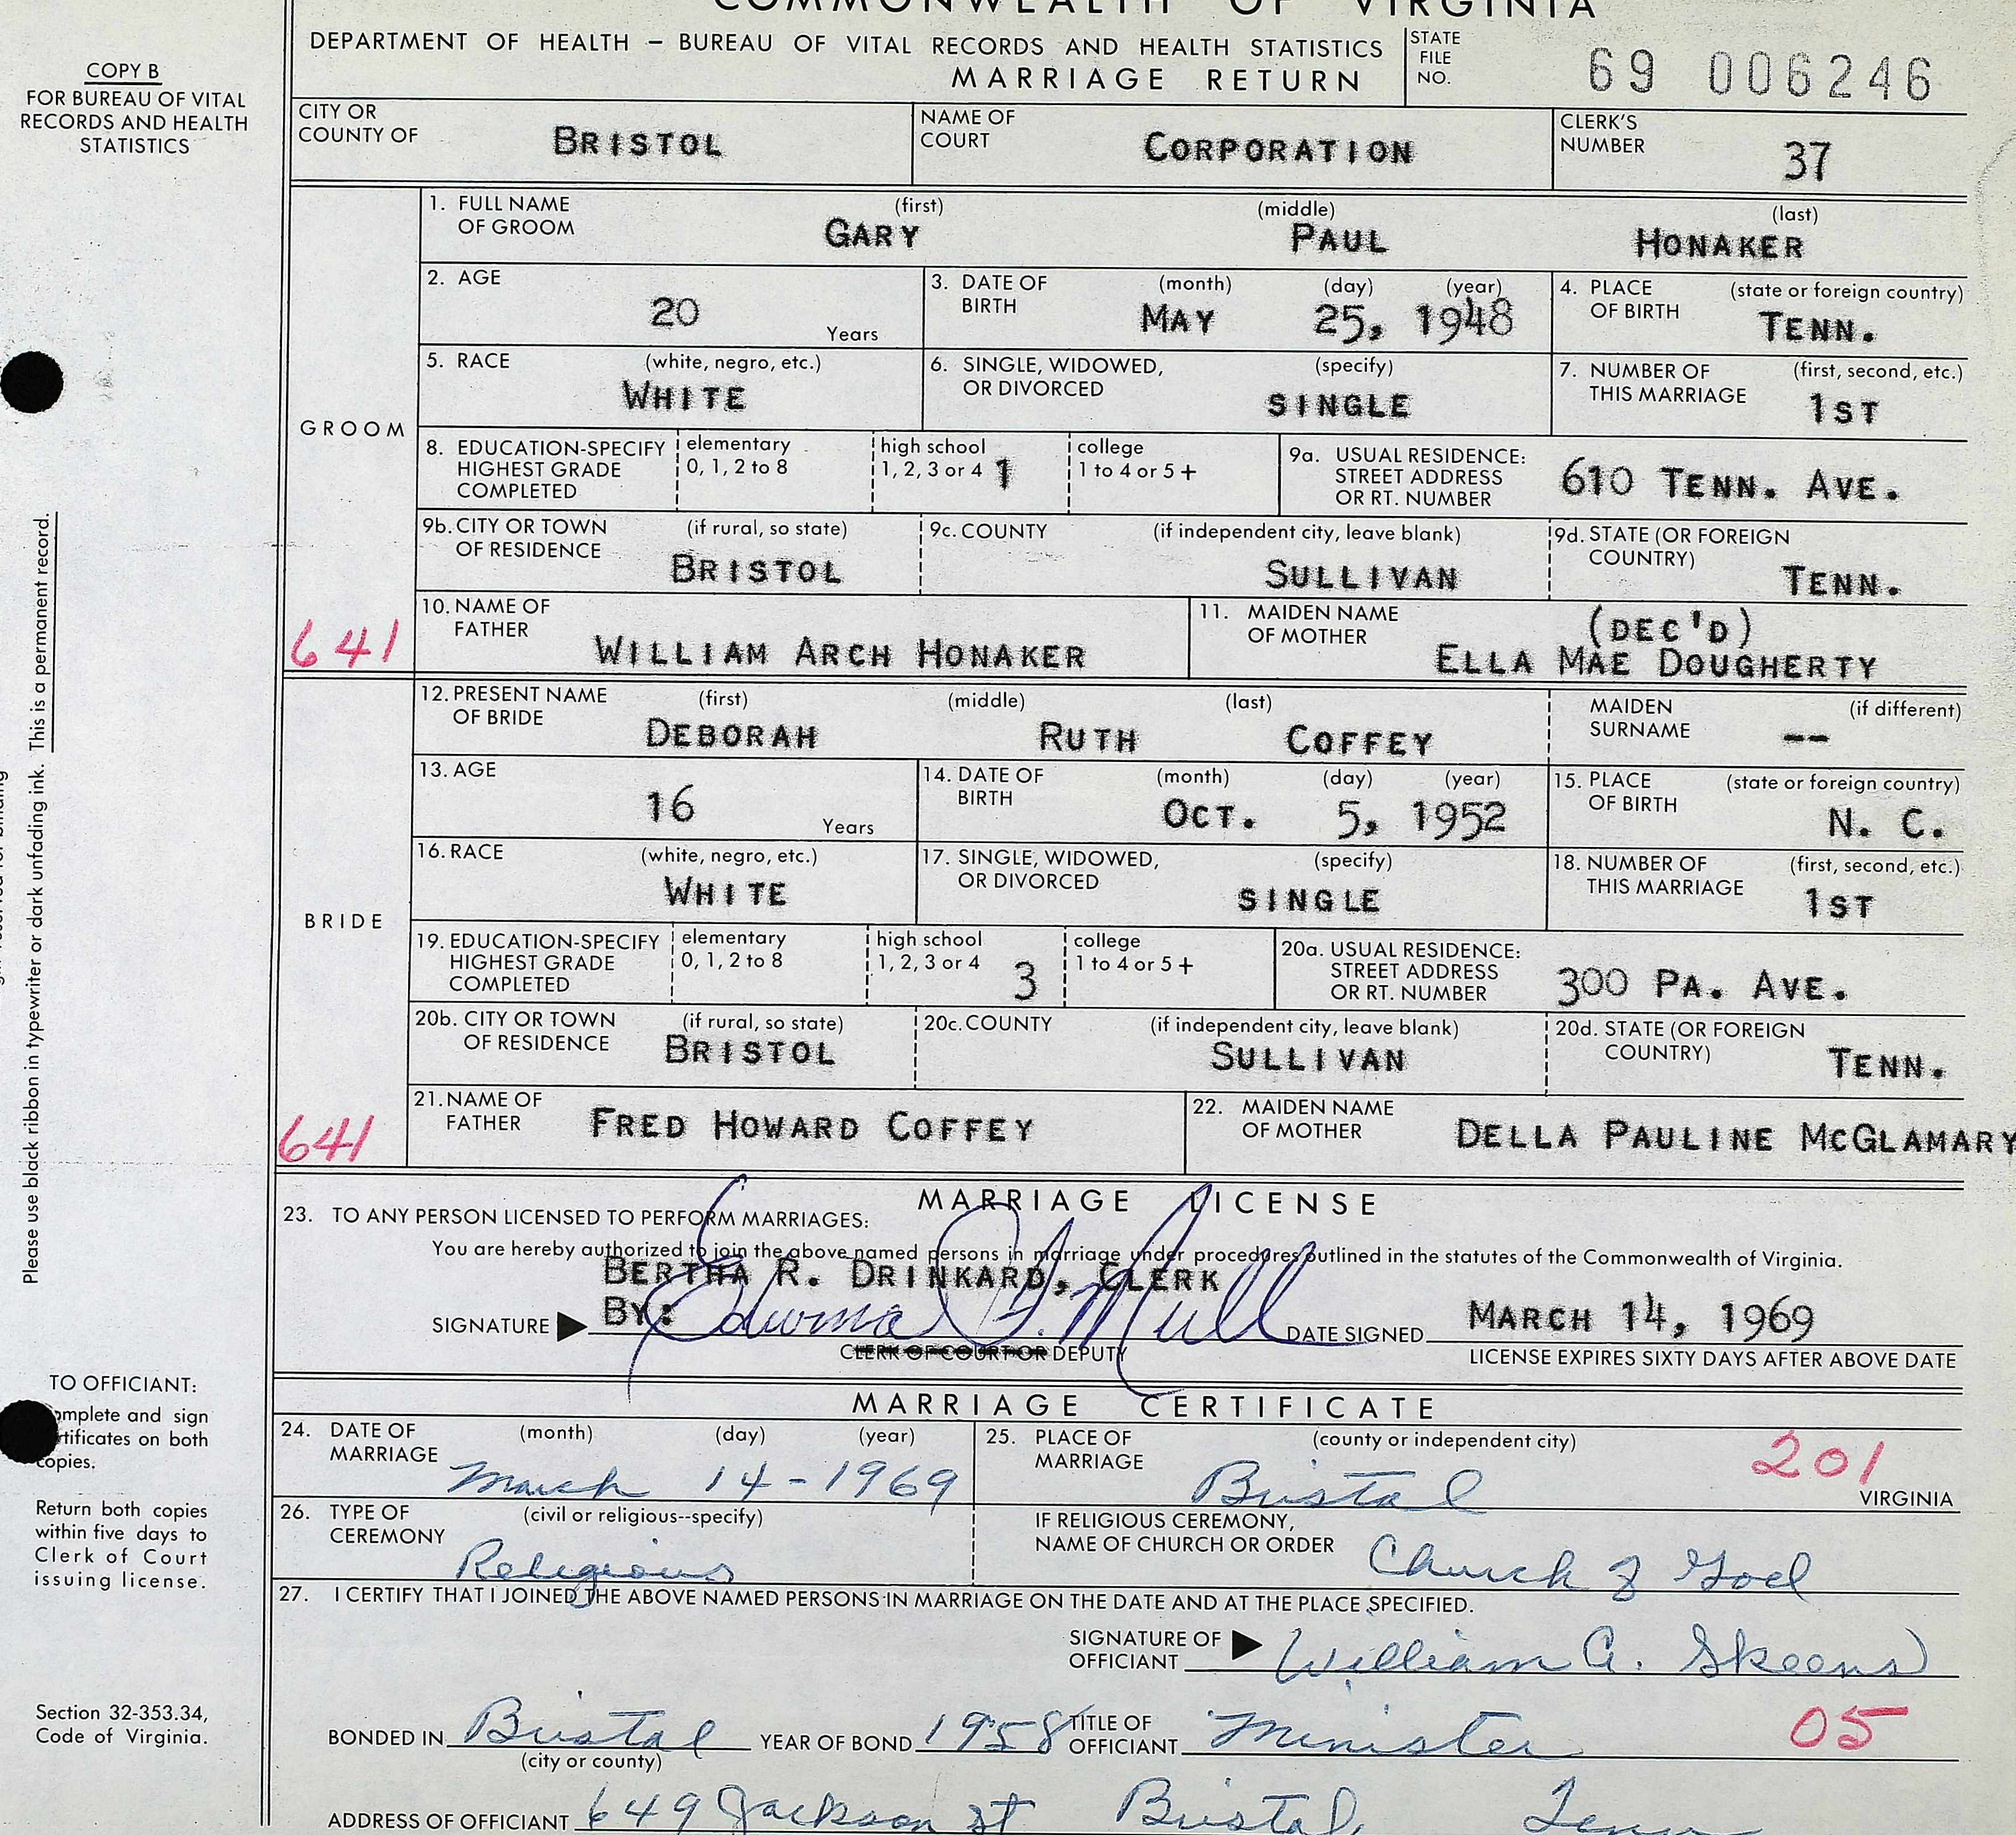 COMMONWEALTH OF VIRGINIA
DEPARTMENT OF HEALTH – BUREAU OF VITAL RECORDS AND HEALTH STATISTICS
MARRIAGE RETURN
STATE FILE NO. 69 006246
COPY B
FOR BUREAU OF VITAL
RECORDS AND HEALTH
STATISTICS
CITY OR COUNTY OF BRISTOL NAME OF COURT CORPORATION CLERK'S NUMBER 37
GROOM
1. FULL NAME OF GROOM (first) GARY (middle) PAUL (last) HONAKER
2. AGE 20 Years 3. DATE OF BIRTH (month) (day) (year) MAY 25, 1948 4. PLACE OF BIRTH (state or foreign country) TENN.
5. RACE (white, negro, etc.) WHITE 6. SINGLE, WIDOWED, OR DIVORCED (specify) SINGLE 7. NUMBER OF THIS MARRIAGE (first, second, etc.) 1ST
8. EDUCATION-SPECIFY HIGHEST GRADE COMPLETED elementary 0, 1, 2 to 8 high school 1, 2, 3 or 4 1 college 1 to 4 or 5+ 9a. USUAL RESIDENCE: STREET ADDRESS OR RT. NUMBER 610 TENN. AVE.
9b. CITY OR TOWN OF RESIDENCE (if rural, so state) BRISTOL 9c. COUNTY (if independent city, leave blank) SULLIVAN 9d. STATE (OR FOREIGN COUNTRY) TENN.
641
10. NAME OF FATHER WILLIAM ARCH HONAKER 11. MAIDEN NAME OF MOTHER (DEC'D) ELLA MAE DOUGHERTY
BRIDE
12. PRESENT NAME OF BRIDE (first) DEBORAH (middle) RUTH (last) COFFEY MAIDEN SURNAME (if different) --
13. AGE 16 Years 14. DATE OF BIRTH (month) (day) (year) OCT. 5, 1952 15. PLACE OF BIRTH (state or foreign country) N. C.
16. RACE (white, negro, etc.) WHITE 17. SINGLE, WIDOWED, OR DIVORCED (specify) SINGLE 18. NUMBER OF THIS MARRIAGE (first, second, etc.) 1ST
19. EDUCATION-SPECIFY HIGHEST GRADE COMPLETED elementary 0, 1, 2 to 8 high school 1, 2, 3 or 4 3 college 1 to 4 or 5+ 20a. USUAL RESIDENCE: STREET ADDRESS OR RT. NUMBER 300 PA. AVE.
20b. CITY OR TOWN OF RESIDENCE (if rural, so state) BRISTOL 20c. COUNTY (if independent city, leave blank) SULLIVAN 20d. STATE (OR FOREIGN COUNTRY) TENN.
641
21. NAME OF FATHER FRED HOWARD COFFEY 22. MAIDEN NAME OF MOTHER DELLA PAULINE MCGLAMARY
Please use black ribbon in typewriter or dark unfading ink. This is a permanent record.
MARRIAGE LICENSE
23. TO ANY PERSON LICENSED TO PERFORM MARRIAGES:
You are hereby authorized to join the above named persons in marriage under procedures outlined in the statutes of the Commonwealth of Virginia.
BERTHA R. DRINKARD, CLERK
SIGNATURE BY: Edwina F. Mull DATE SIGNED MARCH 14, 1969
CLERK OF COURT OR DEPUTY LICENSE EXPIRES SIXTY DAYS AFTER ABOVE DATE
MARRIAGE CERTIFICATE
24. DATE OF MARRIAGE (month) (day) (year) March 14-1969 25. PLACE OF MARRIAGE (county or independent city) Bristol 201 VIRGINIA
26. TYPE OF CEREMONY (civil or religious--specify) Religious IF RELIGIOUS CEREMONY, NAME OF CHURCH OR ORDER Church of God
27. I CERTIFY THAT I JOINED THE ABOVE NAMED PERSONS IN MARRIAGE ON THE DATE AND AT THE PLACE SPECIFIED.
SIGNATURE OF OFFICIANT William A. Skeens
BONDED IN Bristol (city or county) YEAR OF BOND 1958 TITLE OF OFFICIANT Minister 05
ADDRESS OF OFFICIANT 649 Jackson st Bristol, Tenn
TO OFFICIANT:
omplete and sign
rtificates on both
copies.
Return both copies
within five days to
Clerk of Court
issuing license.
Section 32-353.34,
Code of Virginia.